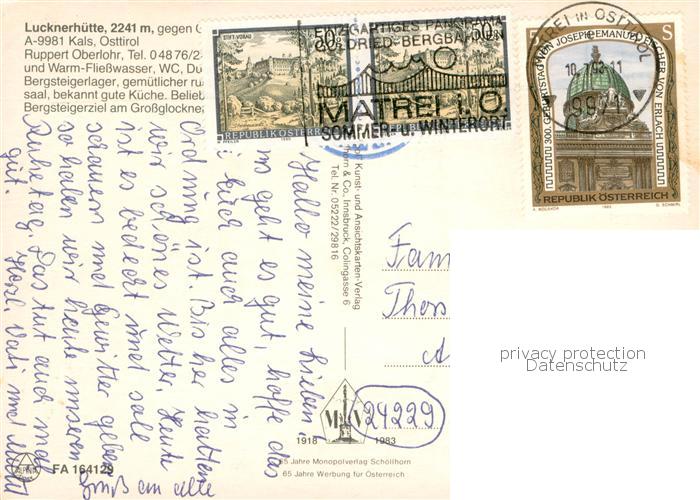 Lucknerhütte, 2241 m, gegen G
A-9981 Kals, Osttirol
Ruppert Oberlohr, Tel. 04876/2
und Warm-Fließwasser, WC, Du
Bergsteigerlager, gemütlicher ru
saal, bekannt gute Küche. Belieb
Bergsteigerziel am Großglockne
STIFT VORAU
50
REPUBLIK ÖSTERR
EINZIGARTIGES PANORAMA
GOLDRIED-BERGBAHNEN
MATREI i. O.
SOMMER- u. WINTERORT
MATREI IN OSTTIROL
9971
5 S
300. GEBURTSTAG VON JOSEPH EMANUEL FISCHER VON ERLACH
REPUBLIK ÖSTERREICH
Hallo meine Lieben,
uns geht es gut, hoffe das
bei Euch auch alles in
Ordnung ist. Bisher hatten
wir schönes Wetter. Heute
ist es bedeckt und soll
schauern und Gewitter geben
so haben wir heute unseren
Ruhetag. Das tut auch mal
gut. Herzl. Vati und Mutti
Gruß an alle
Kunst- und Ansichtskarten-Verlag
& Co., Innsbruck, Colingasse 6
Tel. Nr. 05222/29816
Fam
Thors
A
privacy protection
Datenschutz
MV
24229
1918 1983
65 Jahre Monopolverlag Schöllhorn
65 Jahre Werbung für Österreich
FA 164129